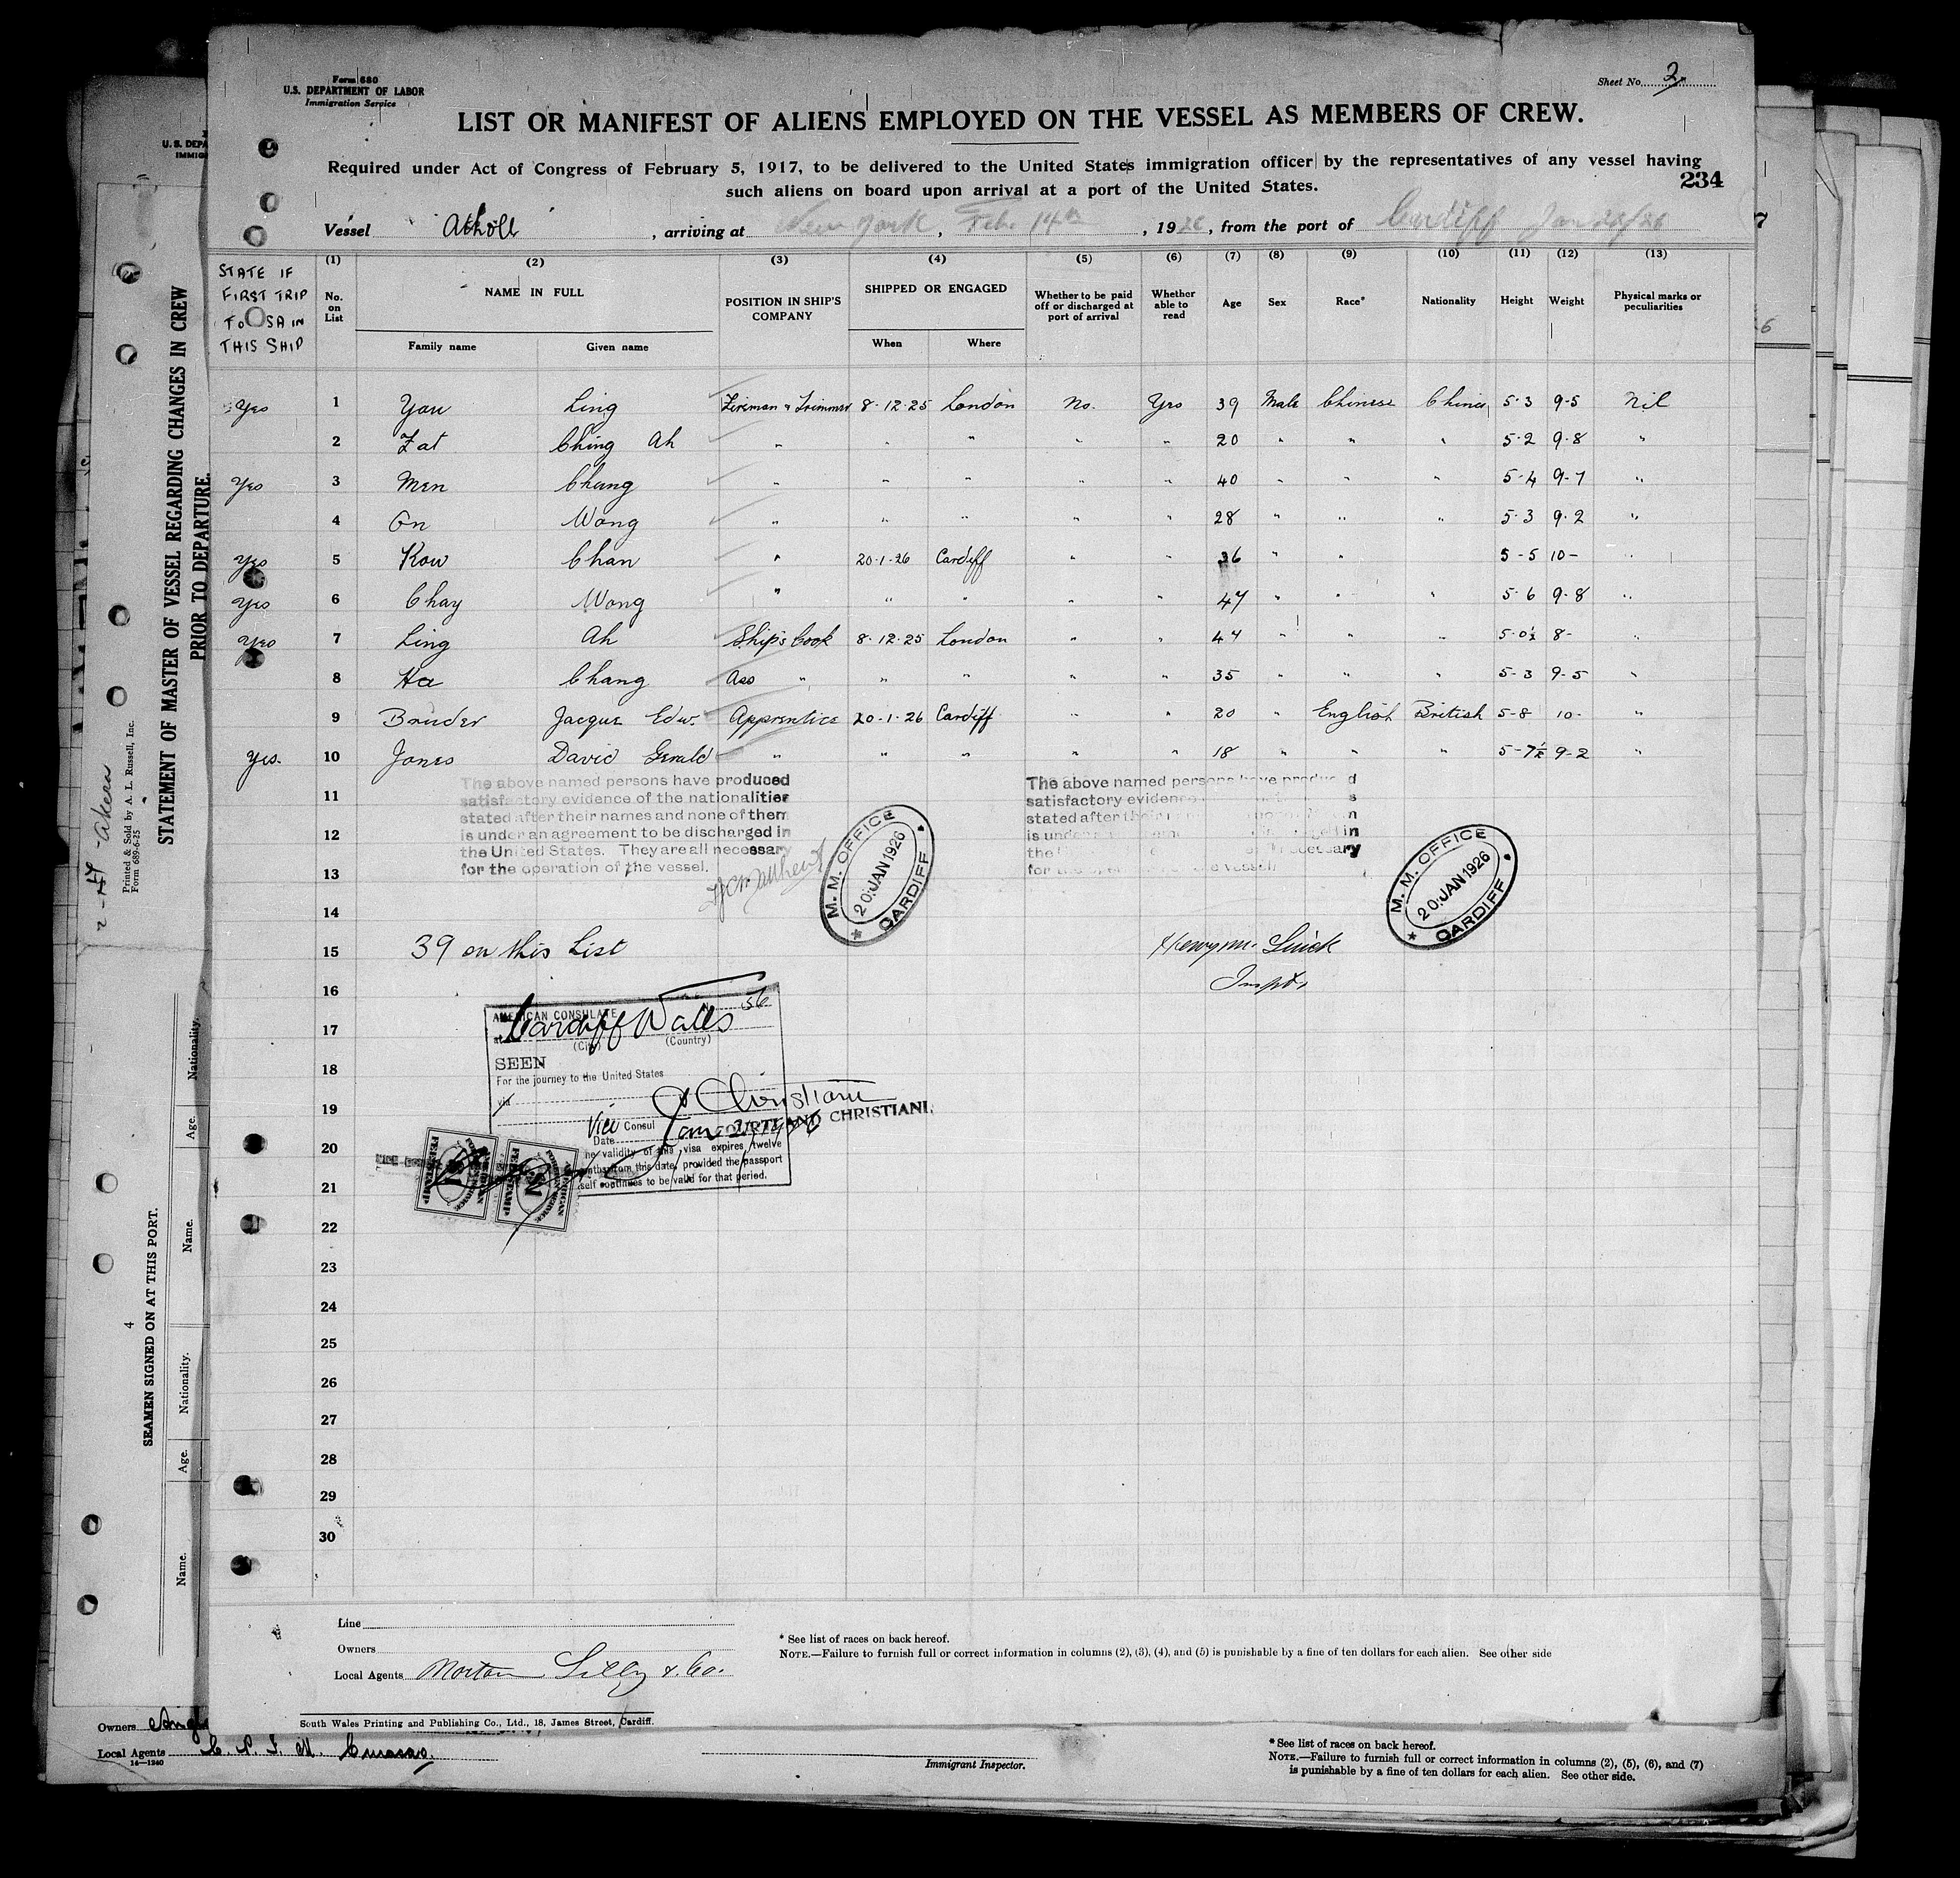 Form 680
U.S. DEPARTMENT OF LABOR
Immigration Service
Sheet No. 2
LIST OR MANIFEST OF ALIENS EMPLOYED ON THE VESSEL AS MEMBERS OF CREW.
Required under Act of Congress of February 5, 1917, to be delivered to the United States immigration officer by the representatives of any vessel having
such aliens on board upon arrival at a port of the United States.
234
Vessel Atholl, arriving at New York, Feb. 14th, 1926, from the port of Cardiff Jan
STATE IF FIRST TRIP TO USA IN THIS SHIP
(1) (2) (3) (4) (5) (6) (7) (8) (9) (10) (11) (12) (13)
No. on List
NAME IN FULL
Family name Given name
POSITION IN SHIP'S COMPANY
SHIPPED OR ENGAGED
When Where
Whether to be paid off or discharged at port of arrival
Whether able to read
Age Sex Race* Nationality Height Weight
Physical marks or peculiarities
Yes 1 You Ling Fireman & Trimmer 8-12-25 London No. Yes 39 Male Chinese Chinese 5-3 9-5 Nil
2 Fat Ching Ah " " " " " 20 " " " 5-2 9-8 "
Yes 3 Men Chung " " " " " 40 " " " 5-4 9-7 "
4 On Wong " " " " " 28 " " " 5-3 9-2 "
Yes 5 Kow Chan " 20-1-26 Cardiff " " 36 " " 5-5 10- "
Yes 6 Chay Wong " " " " " 47 " " " 5-6 9-8 "
Yes 7 Ling Ah Ship's Cook 8-12-25 London " " 47 " " " 5-0½ 8- "
8 Ha Chang Ass " " " " " 35 " " " 5-3 9-5 "
9 Jacque Edw. Apprentice 20-1-26 Cardiff " " 20 " English British 5-8 10- "
Yes. 10 Jones David Gerald " " " " " 18 " " " 5-7½ 9-2 "
The above named persons have produced
satisfactory evidence of the nationalities
stated after their names and none of them
is under an agreement to be discharged in
the United States. They are all necessary
for the operation of the vessel.
The above named persons have produced
satisfactory evidence
stated after their
is under
the necessary
for the vessel.
11
12
13
14
M. M. OFFICE
20 JAN 1926
CARDIFF
M. M. OFFICE
20 JAN 1926
CARDIFF
15 39 on this List
Henry M.
Inspt.
16
17
18
19
20
21
22
23
24
25
26
27
28
29
30
AMERICAN CONSULATE
56
at Cardiff Wales
(City) (Country)
SEEN
For the journey to the United States
via
Christiani
Vice Consul
COURTLAND CHRISTIANI.
Date Jan
The validity of this visa expires twelve
months from this date, provided the passport
itself continues to be valid for that period.
AMERICAN FOREIGN SERVICE FEE STAMP
AMERICAN FOREIGN SERVICE FEE STAMP
Line
Owners
Local Agents Morton Lilly & Co.
* See list of races on back hereof.
NOTE.—Failure to furnish full or correct information in columns (2), (3), (4), and (5) is punishable by a fine of ten dollars for each alien. See other side
South Wales Printing and Publishing Co., Ltd., 18, James Street, Cardiff.
Owners
Local Agents C. P. I. M. Curacao.
14—1240
Immigrant Inspector.
* See list of races on back hereof.
NOTE.—Failure to furnish full or correct information in columns (2), (5), (6), and (7)
is punishable by a fine of ten dollars for each alien. See other side.
U. S. DEPA
IMMIG
STATEMENT OF MASTER OF VESSEL REGARDING CHANGES IN CREW
PRIOR TO DEPARTURE.
Printed & Sold by A. L. Russell, Inc.
Form 689-6-25
SEAMEN SIGNED ON AT THIS PORT.
4
Name. Age. Nationality. Name. Age. Nationality.